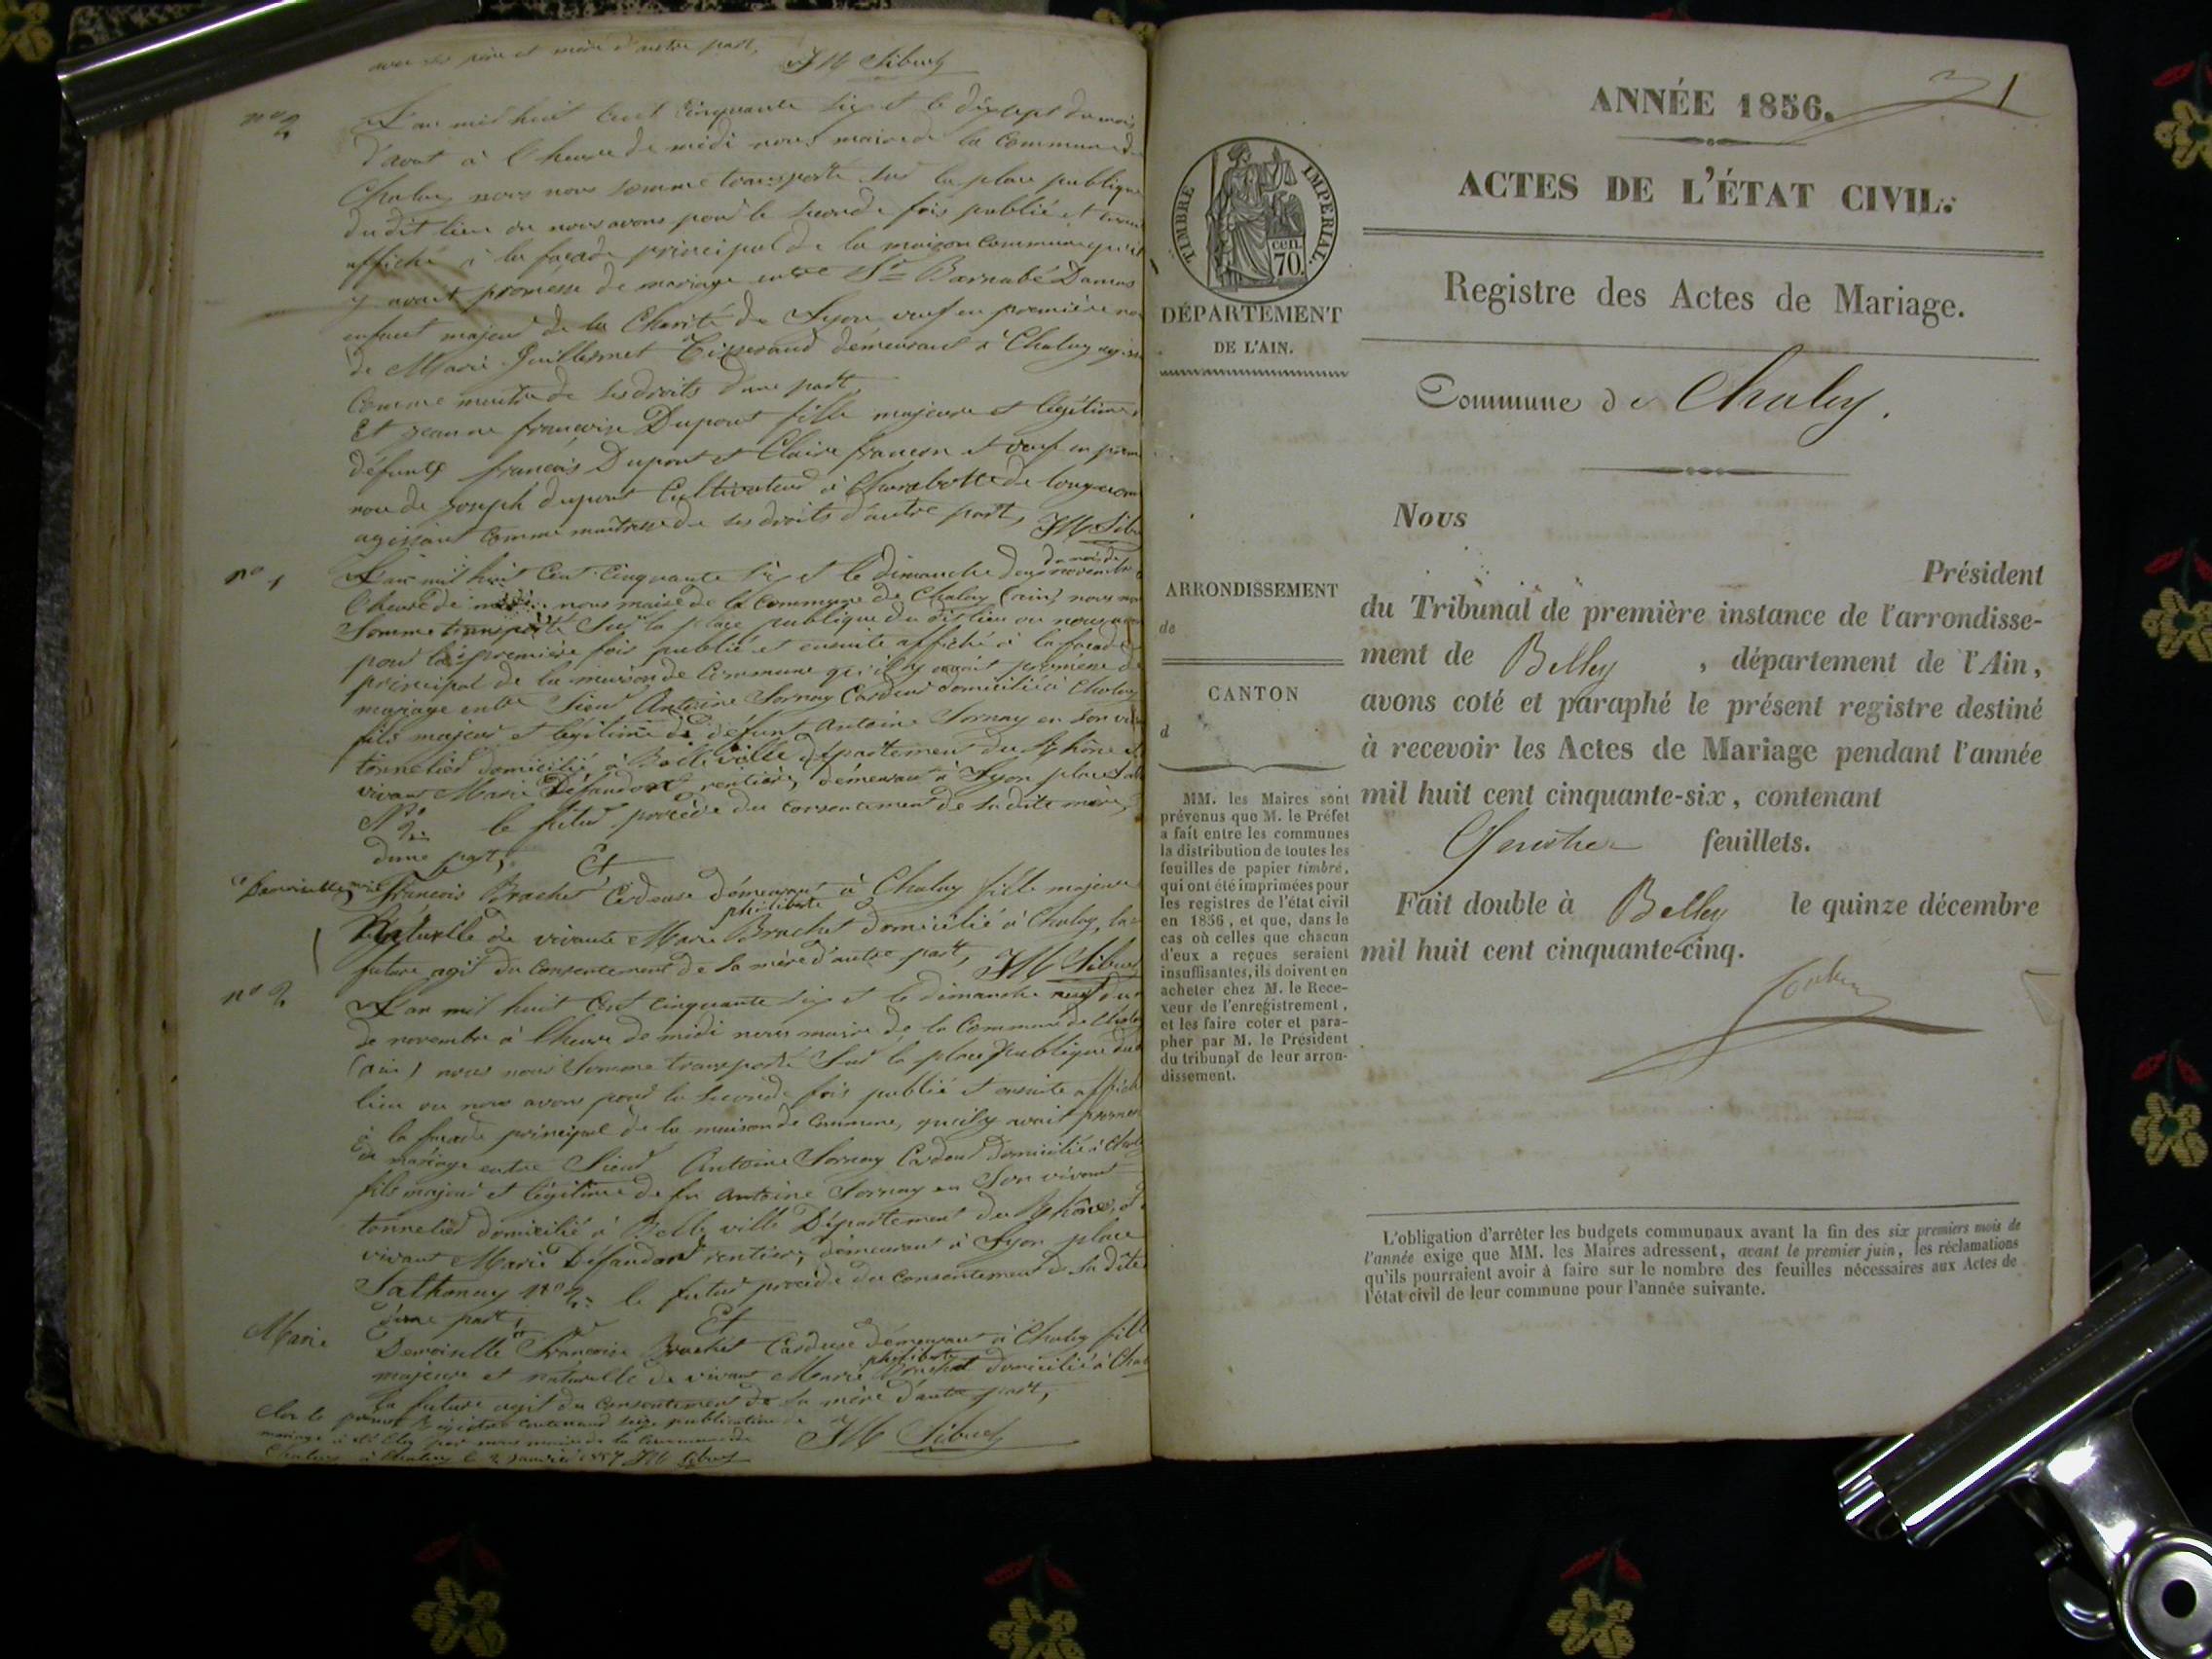 avec ses père et mère d'autre part,
JM Sibuet
n° 2
L'an mil huit cent cinquante six et le dix sept du mois
d'aout à l'heure de midi nous maire de la commune de
Chaley nous nous somme transporté sur la place publique
du dit lieu ou nous avons pour le seconde fois publié et
affiché à la façade principal de la maison commune qu'il
y avait promesse de mariage entre Sr Barnabé Damas
enfant majeur de la Charité de Lyon veuf en première
de Marie Guillermet Tisserand demeurant à Chaley
comme maitre de ses droits d'une part,
Et jeanne françoise Dupont fille majeure et légitime
défunts francois Dupont et Claire françon et veuf en
noce de joseph dupont Cultivateur à Charabotte de
agissant comme maitresse de ses droits d'autre part, JM Sibu
n° 1
du mois de
L'an mil huit cent cinquante six et le dimanche deux novembre
l'heure de midi nous maire de la commune de Chaley (ain) nous
somme transporté sur la place publique du dit lieu ou nous
pour la première fois publié et ensuite affiché à la façade
principal de la maison de commune qu'il y avait promesse de
mariage entre Sieur Antoine Sornay Cardeur domicilié à Chaley
fils majeur et légitime de défunt Antoine Sornay en son
tonnelier domicilié à Belleville département du Rhône
vivant Marie Défandord rentière, demeurant à Lyon place
N° 2 le futur procède du consentement de sa dite mère,
d'une part, Et
Demoiselle
francois Brachet Cardeuse demeurant à Chaley fille majeure
philiberte
Naturelle de vivante Marie Brachet domicilié à Chaley, la
future agit du consentement de sa mère d'autre part, JM Sibuet
n° 2
L'an mil huit cent cinquante six et le dimanche neuf du
de novembre à l'heure de midi nous maire de la commune de Chaley
(ain) nous nous somme transporté sur la place publique du
lieu ou nous avons pour la seconde fois publié et ensuite affich
à la façade principal de la maison de commune, qu'il y avait promes
de mariage entre Sieur Antoine Sornay Cardeur domicilié à Chaley
fils majeur et légitime de feu Antoine Sornay en son vivant
tonnelier domicilié à Belleville Département du Rhône, et
vivant Marie Défandord rentière, demeurant à Lyon place
Sathonay N° 2 le futur procède du consentement de sa dite
d'une part, Et
Marie
Demoiselle Françoise Brachet Cardeuse demeurant à Chaley fille
philiberte
majeure et naturelle de vivant Marie Brachet domicilié à Chaley
la future agit du consentement de sa mère d'autre part,
Clos le présent Registre contenant seize publications de
mariage par nous maire de la Commune de
Chaley à Chaley le 2 janvier 1857 JM Sibuet
JM Sibuet
1
ANNÉE 1856.
ACTES DE L'ÉTAT CIVIL.
Registre des Actes de Mariage.
Commune de Chaley.
TIMBRE IMPERIAL.
cen.
70.
DÉPARTEMENT
DE L'AIN.
ARRONDISSEMENT
de
CANTON
d
MM. les Maires sont
prévenus que M. le Préfet
a fait entre les communes
la distribution de toutes les
feuilles de papier timbré,
qui ont été imprimées pour
les registres de l'état civil
en 1856, et que, dans le
cas où celles que chacun
d'eux a reçues seraient
insuffisantes, ils doivent en
acheter chez M. le Rece-
veur de l'enregistrement,
et les faire coter et para-
pher par M. le Président
du tribunal de leur arron-
dissement.
Nous
Président
du Tribunal de première instance de l'arrondisse-
ment de Belley, département de l'Ain,
avons coté et paraphé le présent registre destiné
à recevoir les Actes de Mariage pendant l'année
mil huit cent cinquante-six, contenant
Quatre feuillets.
Fait double à Belley le quinze décembre
mil huit cent cinquante-cinq.
L'obligation d'arrêter les budgets communaux avant la fin des six premiers mois de
l'année exige que MM. les Maires adressent, avant le premier juin, les réclamations
qu'ils pourraient avoir à faire sur le nombre des feuilles nécessaires aux Actes de
l'état civil de leur commune pour l'année suivante.